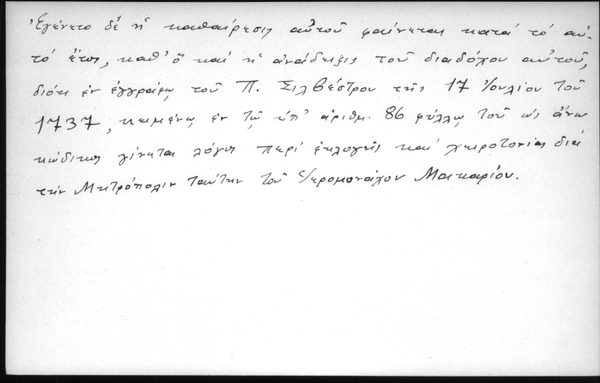 Ἐγένετο δέ ἡ καθαίρεσις αὐτοῦ φαίνεται κατά τό αὐ-
τό ἔτος, καθ' ὅ καί ἡ ἀνάδειξις τοῦ διαδόχου αὐτοῦ,
διότι ἐν ἐγγράφῳ τοῦ Π. Σιλβέστρου τῆς 17 Ἰουλίου τοῦ
1737, κειμένῳ ἐν τῷ ὑπ' ἀριθμ. 86 φύλλῳ τοῦ ὡς ἄνω
κώδικος γίνεται λόγος περί ἐκλογῆς καί χειροτονίας διά
τήν Μητρόπολιν ταύτην τοῦ Ἱερομονάχου Μακαρίου.